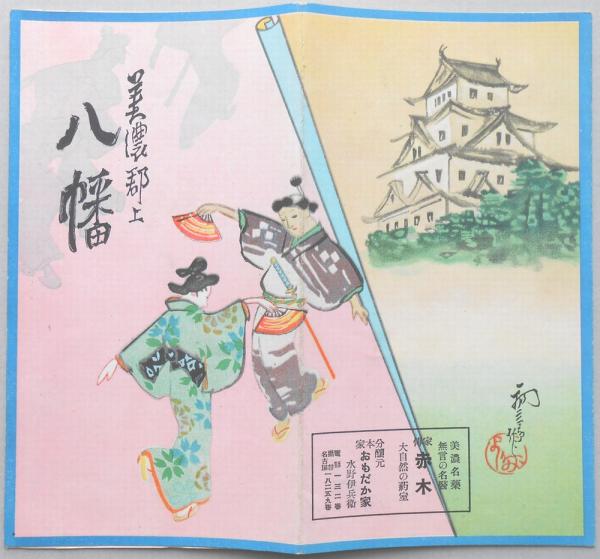 美濃郡上
八幡
美濃名薬
無言の名醫
家傳
赤木
大自然の葯室
分舗元
本家
おもだか家
水野伊兵衛
電話一三二番
名古屋一八二五九番